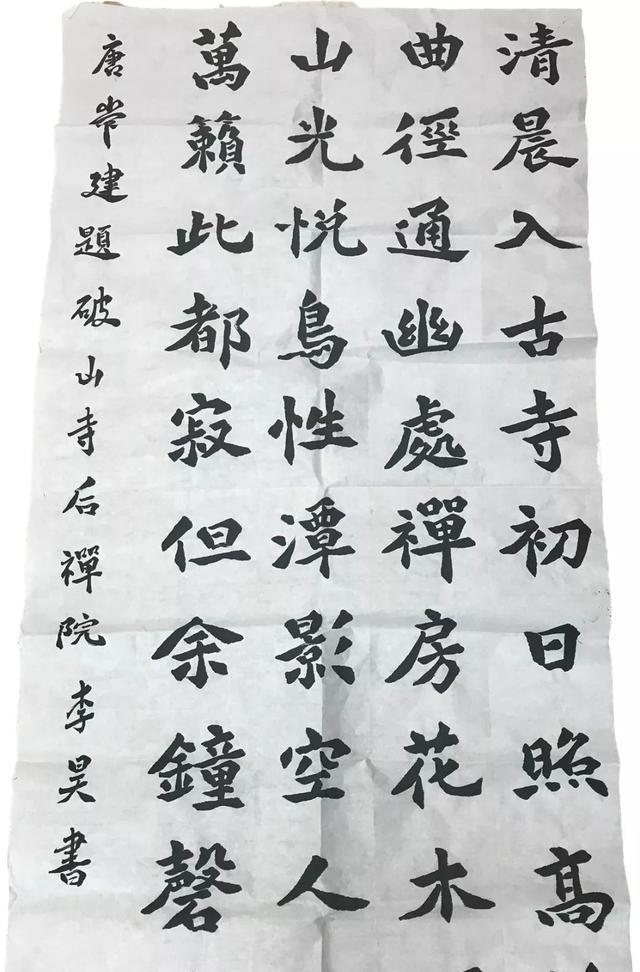 清晨入古寺初日照高
曲徑通幽處禪房花木
山光悅鳥性潭影空人
萬籟此都寂但余鐘磬
唐常建題破山寺后禪院李昊書